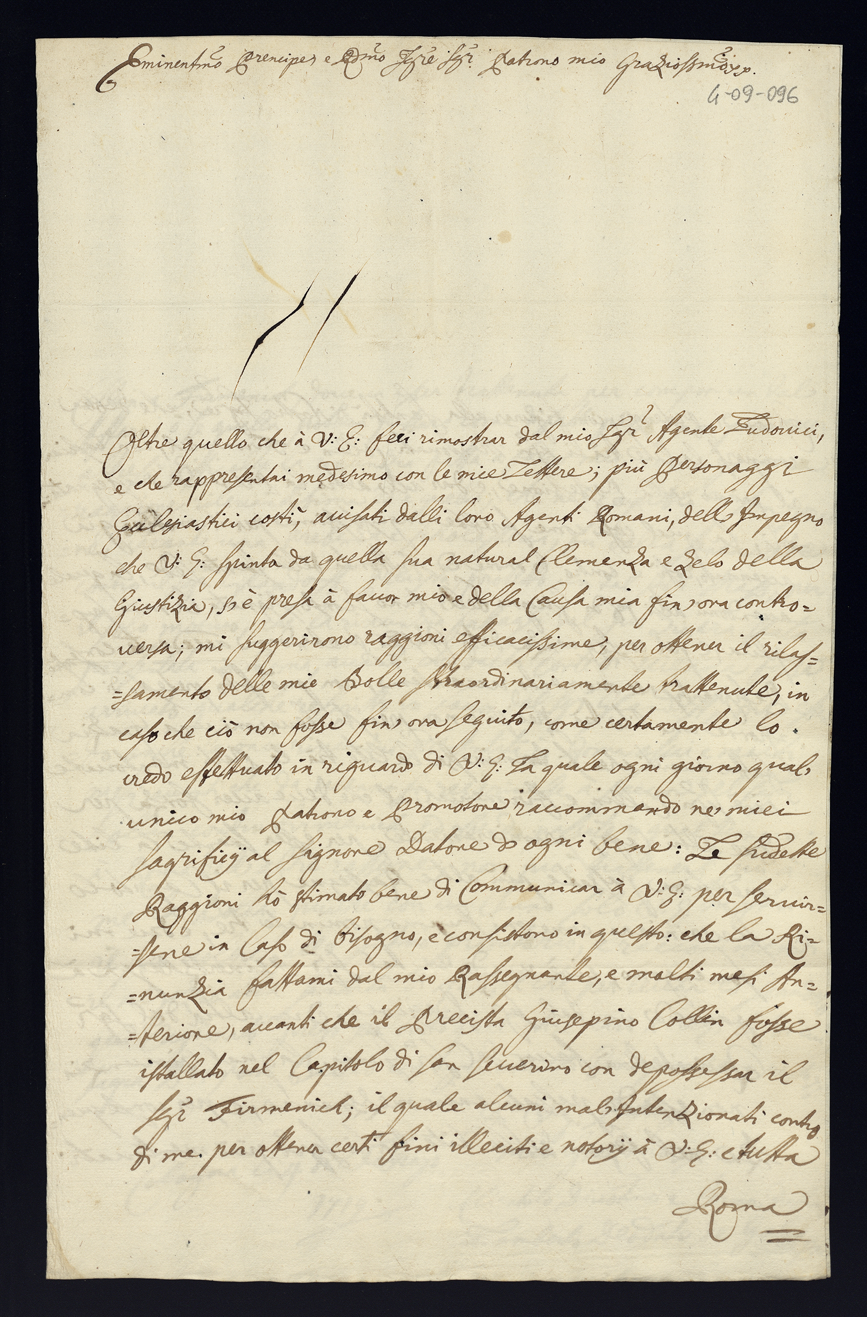 Eminentmo Prencipe e Rdmo Sgre Sgr Patrono mio Graziossmo
4-09-096
Oltre quello che à V: E: feci rimostrar dal mio Sgr Agente Ludovici,
e che rappresentai medesimo con le mie Lettere; più Personaggi
Ecclesiastici costì, avisati dalli loro Agenti Romani, dell Impegno
che V: E: spinta da quella sua natural Clemenza e Zelo della
Giustizia, s'è presa à favor mio e della Causa mia fin ora contro=
versa; mi suggerirono raggioni efficacissime, per ottener il rilas=
=samento delle mie Bolle straordinariamente trattenute, in
caso che ciò non fosse fin ora seguito, come certamente lo
credo effettuato in riguardo di V: E: La quale ogni giorno qual
unico mio Patrono e Promotore raccommando ne miei
sagrificij al Signore Datore d'ogni bene: Le sudette
Raggioni hò stimato bene di Communicar à V: E: per servir=
=sene in Caso di bisogno, e consistono in questo: che la Ri=
=nunzia fattami dal mio Rassegnante, e molti mesi An=
=teriore, avanti che il Precista Giusepino Collin fosse
istallato nel Capitolo di San Severino con depossessar il
Sgr Firmenich; il quale alcuni mal Intenzionati contro
di me per ottener certi fini illeciti e notorij à V: E: e tutta
Roma